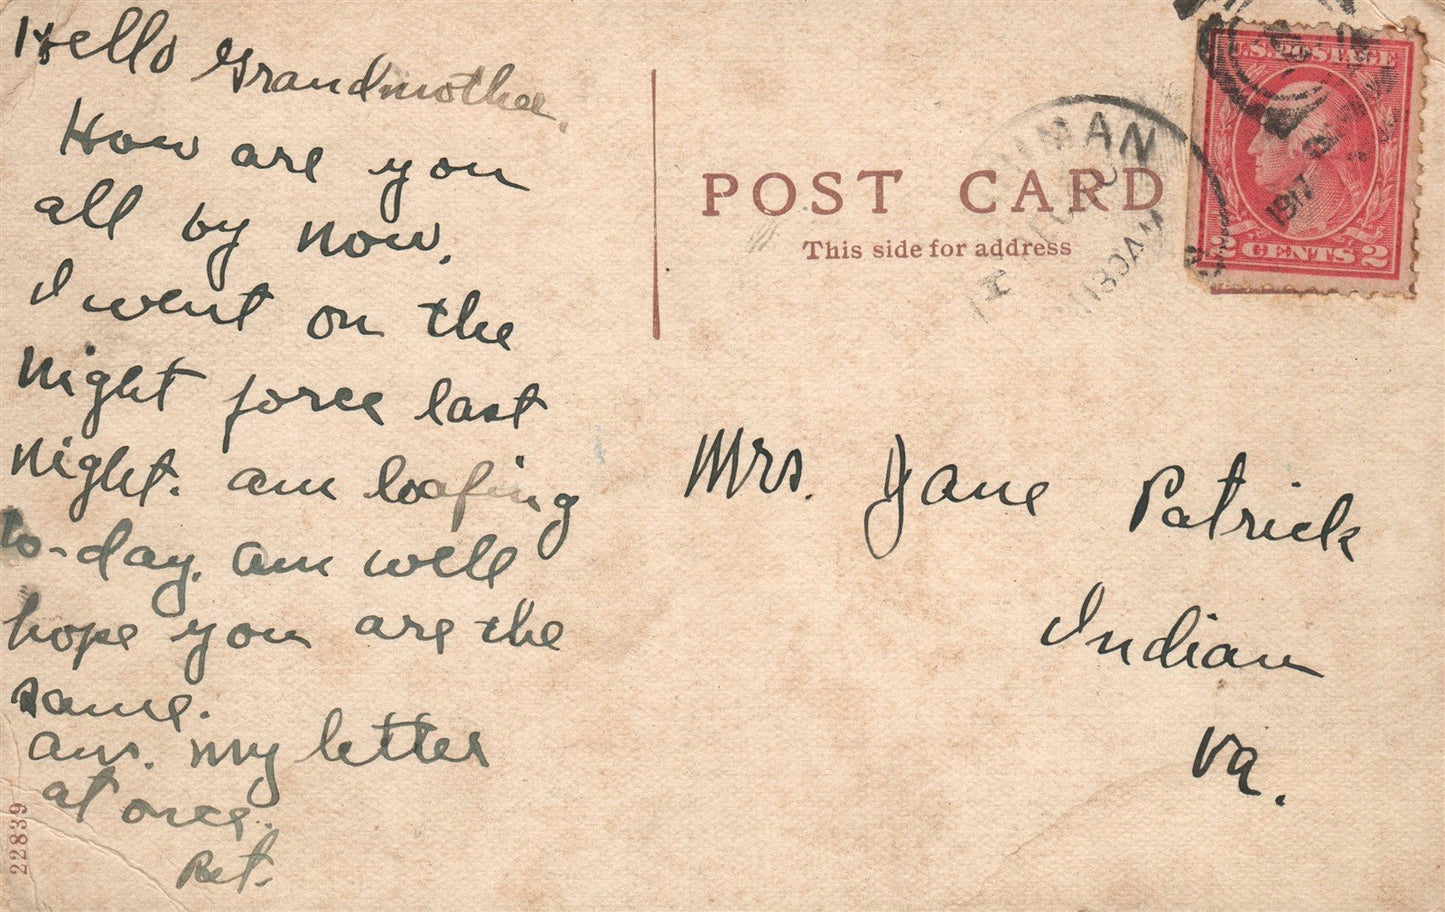 Hello Grandmother.
How are you
all by now.
I went on the
night force last
night. am loafing
to-day. am well
hope you are the
same.
ans. my letter
at once.
Ret.
22839
POST CARD
This side for address
1130AM
1917
U.S. POSTAGE
2 CENTS 2
Mrs. Jane Patrick
Indian
Va.